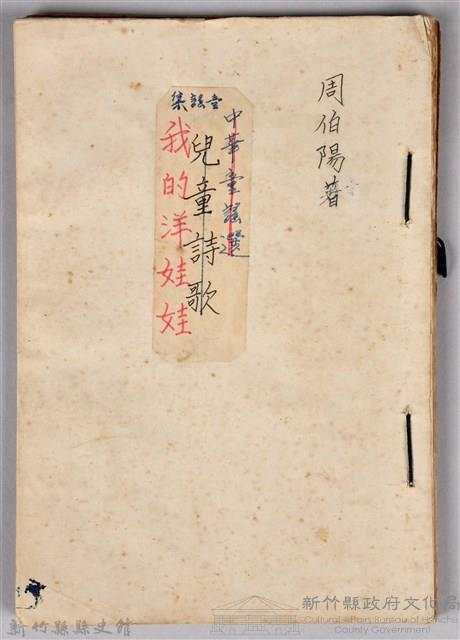 周伯陽著
中華童謠選
兒童詩歌
童謠集
我的洋娃娃
新竹縣縣史館
新竹縣政府文化局
Cultural Affairs Bureau of Hsinchu
County Government